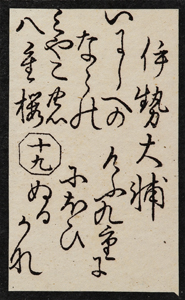 伊勢大輔
いにしへの
ならの
みやこの
八重櫻
けふ九重に
にほひ
ぬる
かな
十九